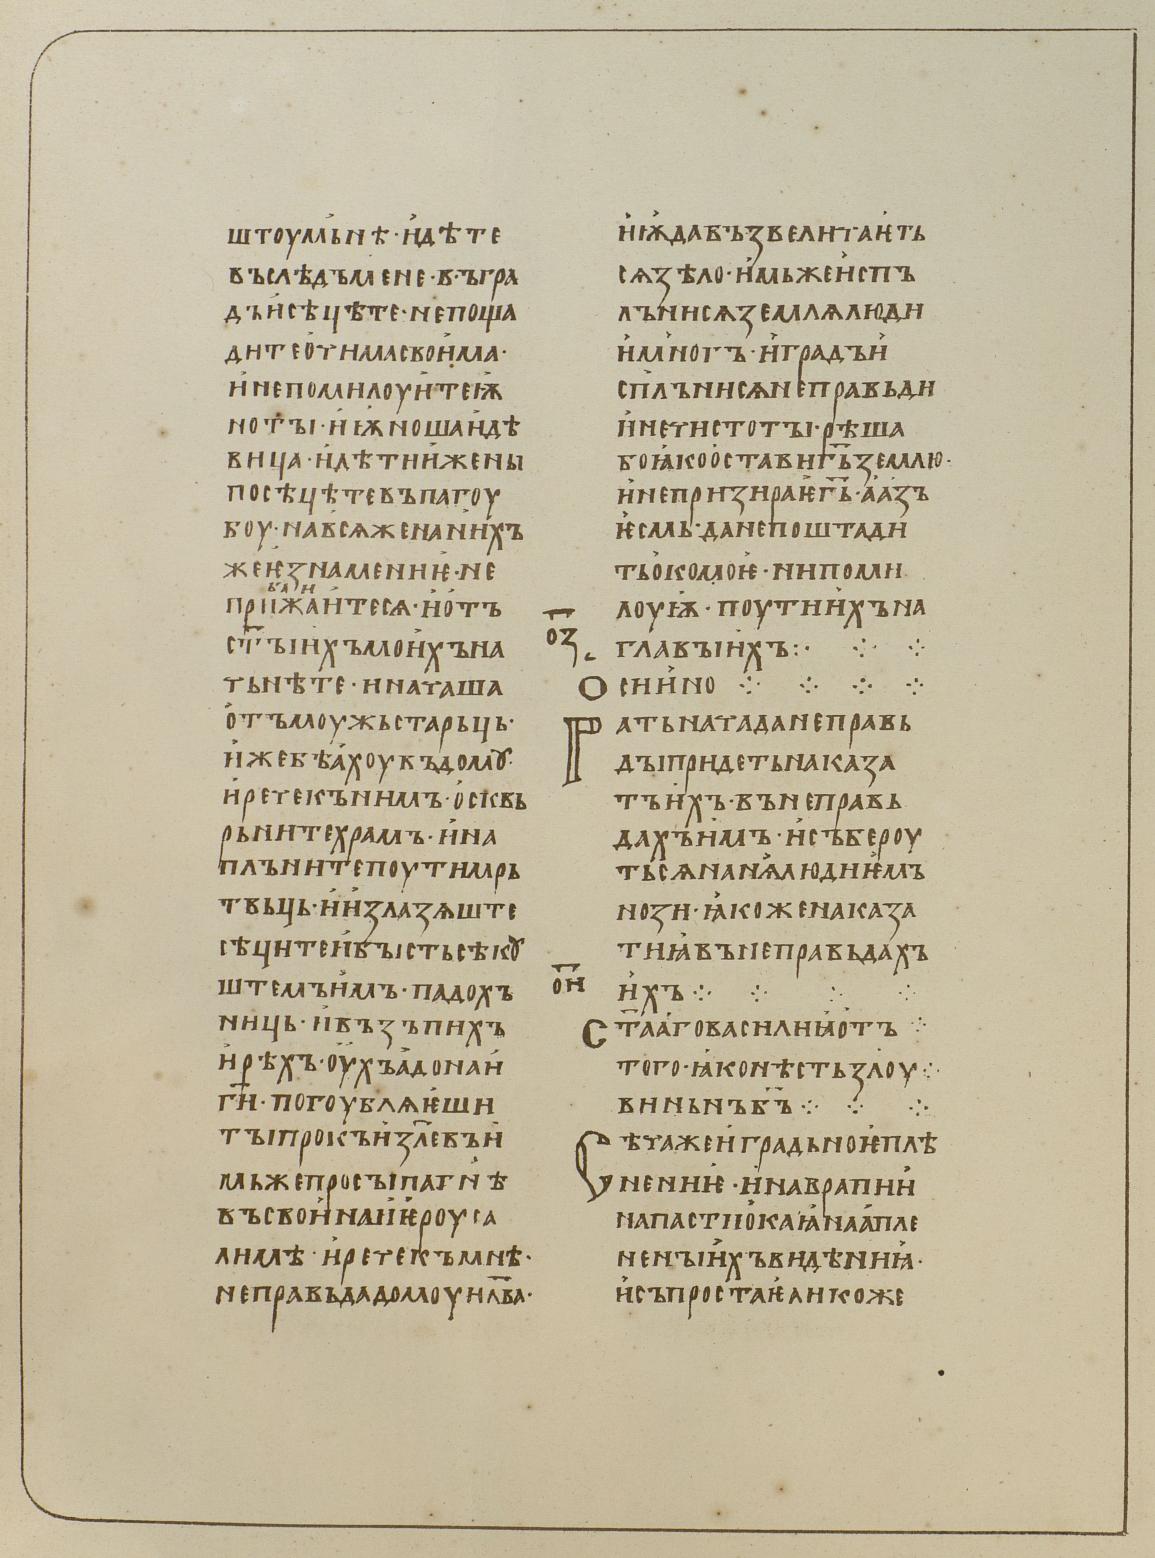 штоумьнѣ·идѣте
въслѣдъмене·въгра
дъисѣцѣте·непоща
дитеочимасвоима·
инепомилоуитеѭ
нотъı·иѭношаидѣ
вица·идѣтиижены
посѣцѣтевъпагоу
боу·навсѧженанихъ
жеѥзнамениѥ·не
приближаитесѧ·иотъ
ст҃ъıихъмоихъна
чьнѣте·иначаша
отъмоужьстарьць·
ижебѣахоувъдомꙋ·
иречекънимъ·осквь
рьнитехрамъ·ина
плънитепоутимрь
твьць·иизлазѧште
сѣцитеибъıстьсѣкꙋ
штемъимъ·падохъ
ниць·ивъзъпихъ
ирѣхъ·оухъадонаи
ги҃·погоублѧѥши
тъıпрокъиизл҃евъи
мьжепросъıпатгнѣ
въсвоинаиѥроуса
лимѣ·иречекъмнѣ·
неправьдадомоуил҃ва·
иѭдавъзвеличаѥть
сѧзѣло·имьжеиспъ
лънисѧземлѧлюди
имногъ·иградъи
сплънисѧнеправьди
инечистотъı·рѣша
боꙗкооставигь҃землю·
инепризираѥгь҃·аазъ
ѥсмь·данепоштади
тьокомоѥ·нипоми
лоуѭ·поутиихъна
о҃з главъıихъ:·
Осиино
Ратьначаданеправь
дъıпридетьнаказа
тъихъ·вънеправь
дахъимъ·исъбероу
тьсѧнанѧлюдиѥмъ
нози·ꙗкоженаказа
тиꙗвънеправьдахъ
о҃и ихъ
Ст҃ааговасилиꙗотъ
того·ꙗконѣстьзлоу
виньнъб҃ъ
Сѣчажеиградьноѥплѣ
нениѥ·инавратнии
напастиокаꙗнаапле
ненъıихъвидѣниꙗ·
исъпростаѥликоже